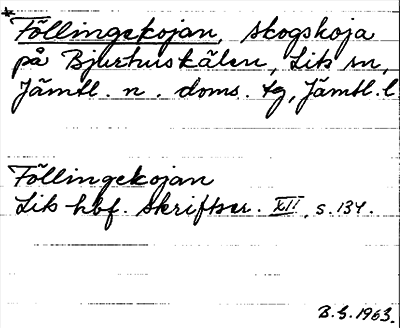 *Föllingekojan, skogskoja
på Bjurhuskälen, Lits sn,
Jämtl. n. doms. tg, Jämtl. l
Föllingekojan
Lits hbf. Skriftser. XII, s. 134.
B.S. 1963.